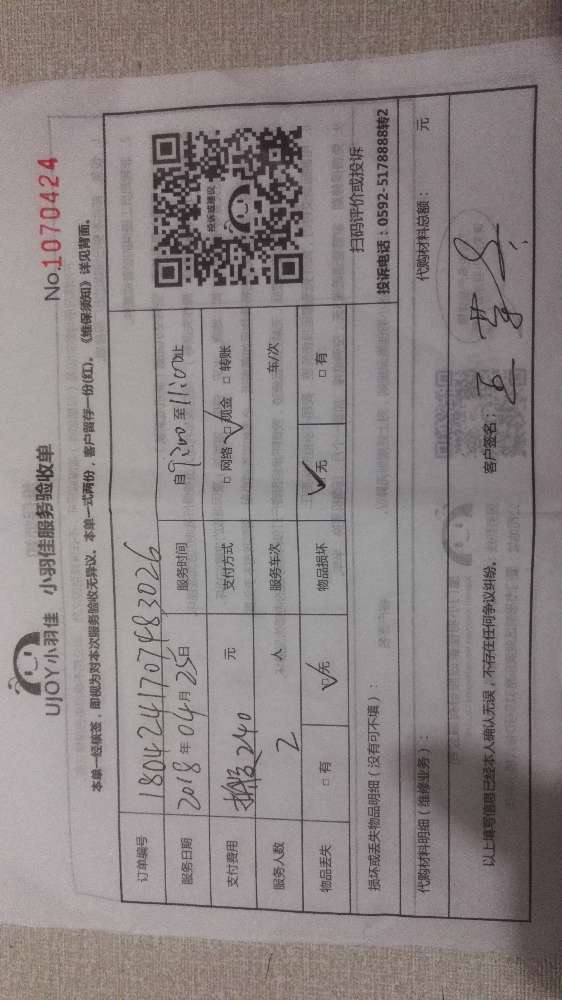 UJOY小羽佳 小羽佳服务验收单
No.1070424
本单一经核签，即视为对本次服务验收无异议。本单一式两份，客户留存一份(红)。《维保须知》详见背面。
订单编号 1804241707483026
服务日期 2018年04月25日 服务时间 自9:00至11:00止
支付费用 240元 支付方式 □网络 □现金 □转账
服务人数 2人 服务车次 车/次
物品丢失 □有 ☑无 物品损坏 ☑无 □有
投诉或建议
扫码评价或投诉
投诉电话：0592-5178888转2
损坏或丢失物品明细（没有可不填）：
代购材料明细（维修业务）： 代购材料总额： 元
以上填写信息已经本人确认无误，不存在任何争议纠纷。 客户签名：